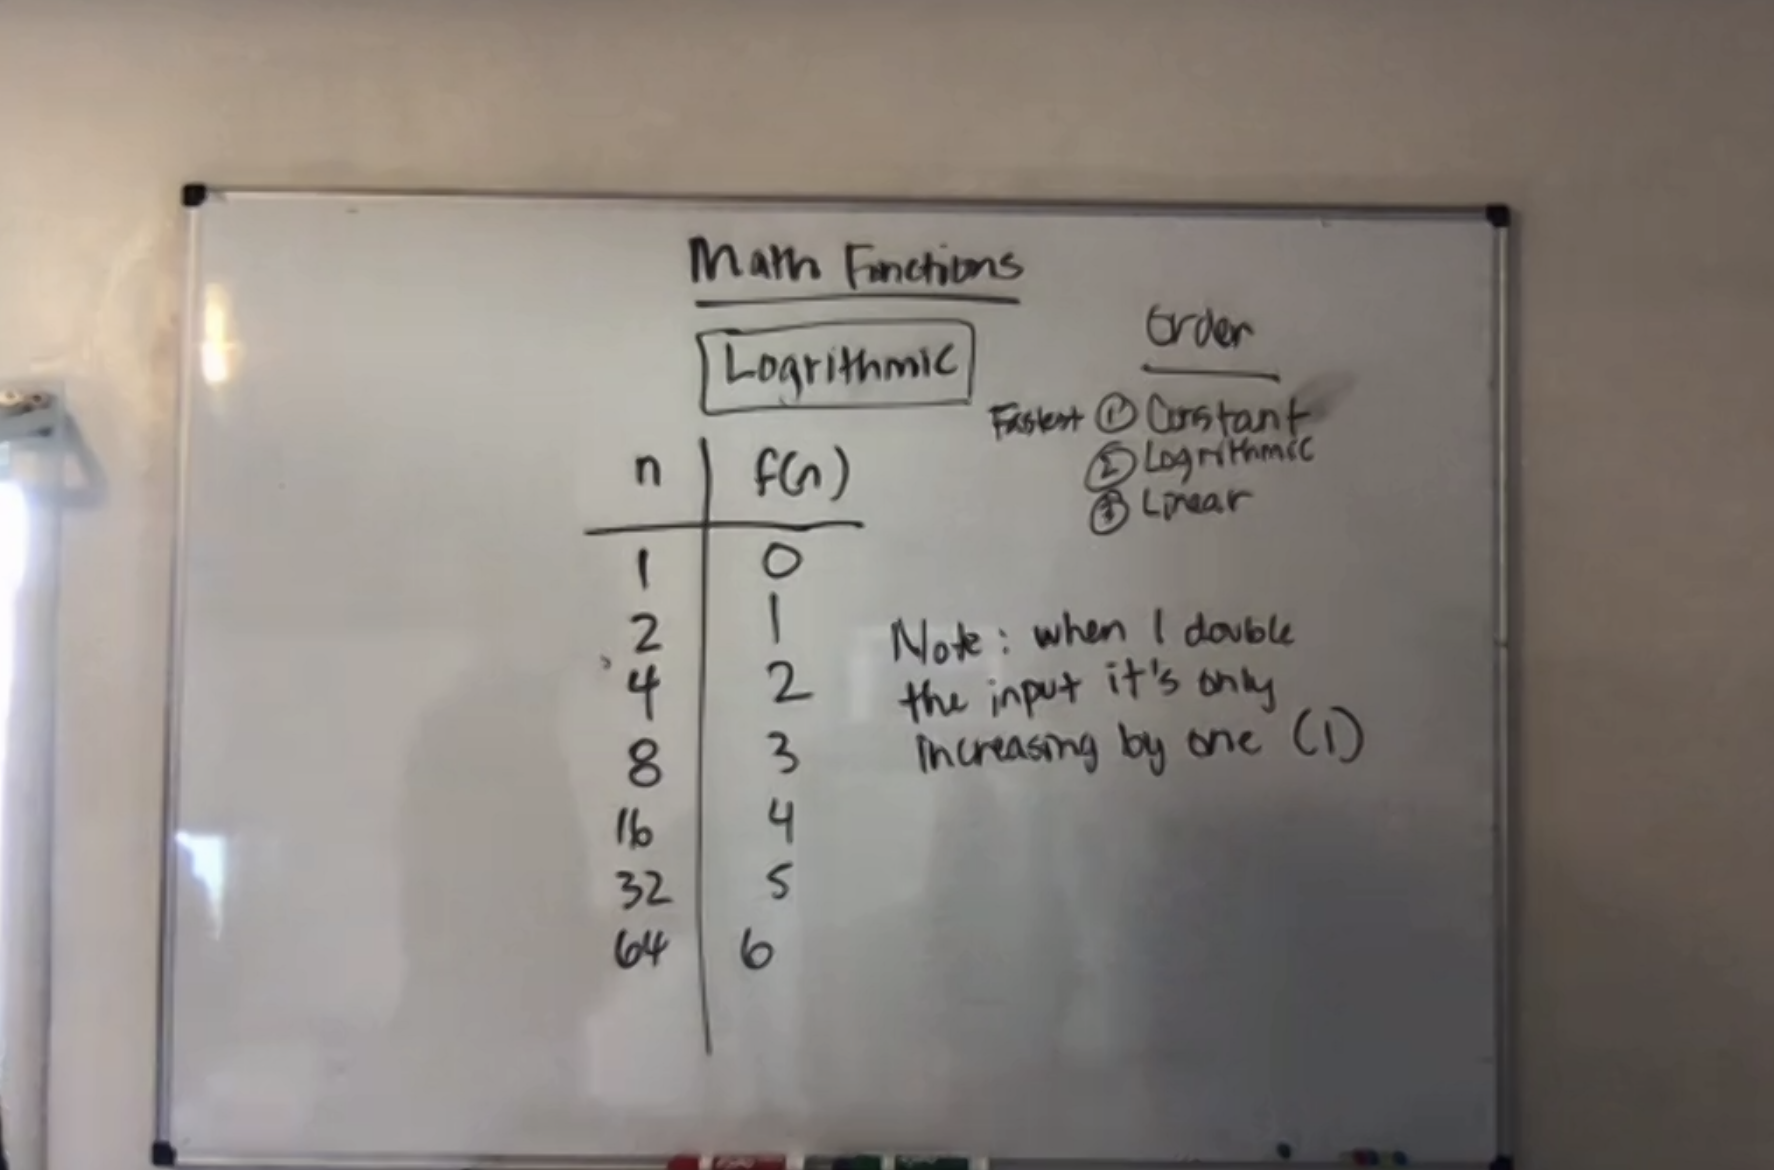 Math Functions
Logrithmic
n f(n)
1 0
2 1
4 2
8 3
16 4
32 5
64 6
Order
Fastest ① Constant
② Logrithmic
③ Linear
Note: when I double
the input it's only
increasing by one (1)